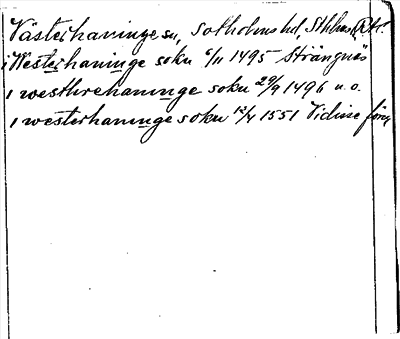 Västerhaninge sn, Sotholms hd, Sthlms
i Westerhaninge sokn 6/11 1495 Strängnäs
i westhrehaninge sokn 29/9 1496 u.o.
i westerhaninge sokn 12/4 1551 Vidisse